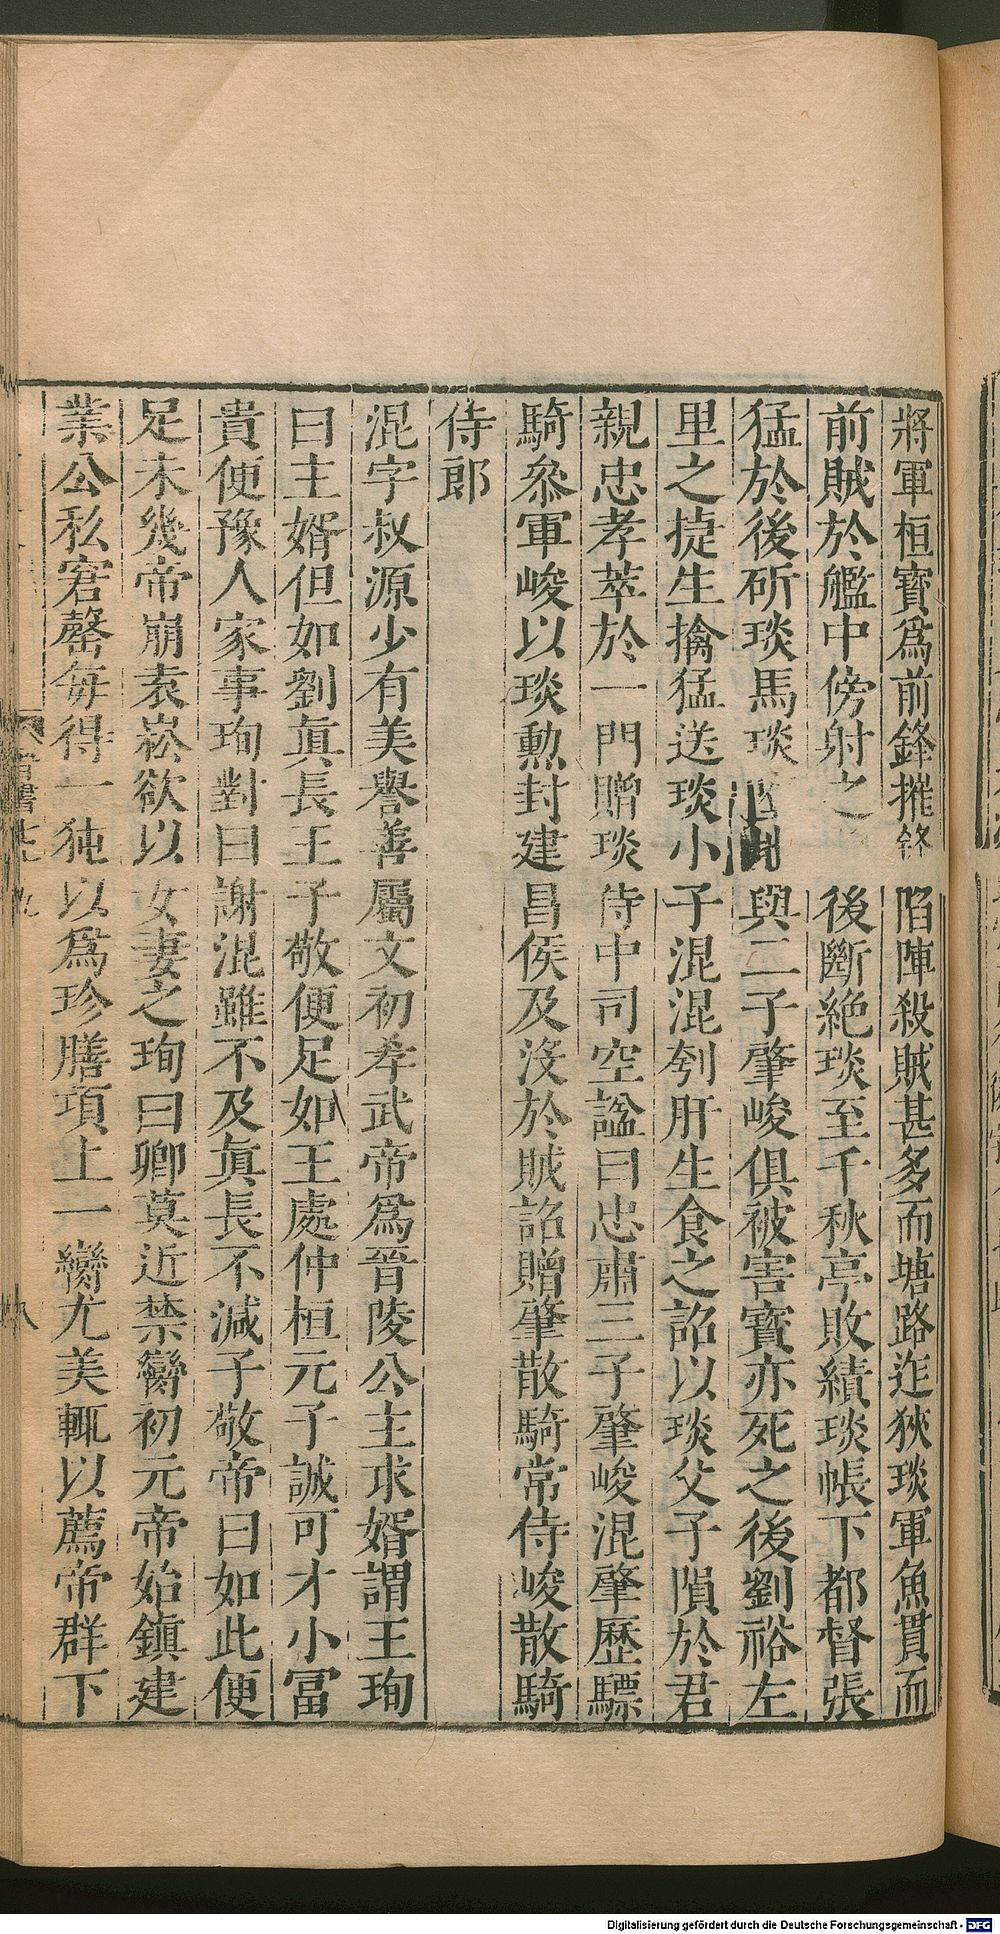 將軍桓寶爲前鋒摧鋒陷陣殺賊甚多而塘路迮狹琰軍魚貫而
前賊於艦中傍射之後斷絶琰至千秋亭敗績琰帳下都督張
猛於後斫琰馬琰與二子肇峻俱被害寶亦死之後劉裕左
里之捷生擒猛送琰小子混混刳肝生食之詔以琰父子隕於君
親忠孝萃於一門贈琰侍中司空諡曰忠肅三子肇峻混肇歷驃
騎叅軍峻以琰勲封建昌侯及沒於賊詔贈肇散騎常侍峻散騎
侍郎
混字叔源少有美譽善屬文初孝武帝爲晉陵公主求婿謂王珣
曰主婿但如劉眞長王子敬便足如王處仲桓元子誠可才小冨
貴便豫人家事珣對曰謝混雖不及眞長不減子敬帝曰如此便
足未幾帝崩袁崧欲以女妻之珣曰卿莫近禁臠初元帝始鎮建
業公私窘罄每得一㹠以爲珍膳項上一臠尤美輒以薦帝群下
晉書
八
Digitalisierung gefördert durch die Deutsche Forschungsgemeinschaft - DFG